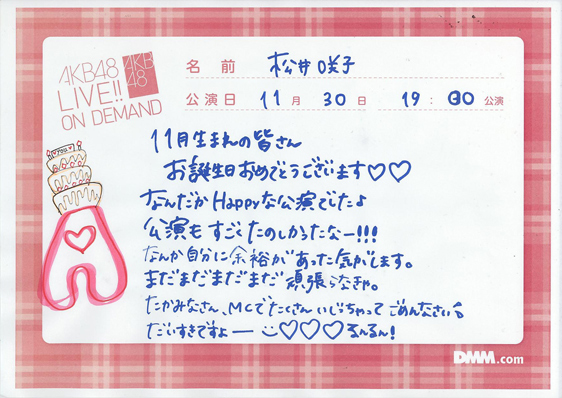 AKB48
LIVE!!
ON DEMAND
AKB
48
名前 松井咲子
公演日 11月 30日 19:00公演
11月生まれの皆さん
お誕生日おめでとうございます♡♡
なんだかHappyな公演でしたよ
公演もすごくたのしかったなー!!!
なんか自分に余裕があった気がします。
まだまだまだまだ頑張らなきゃ。
たかみなさん、MCでたくさんいじっちゃってごめんなさい
だいすきですよー♡♡♡るんるん!
DMM.com